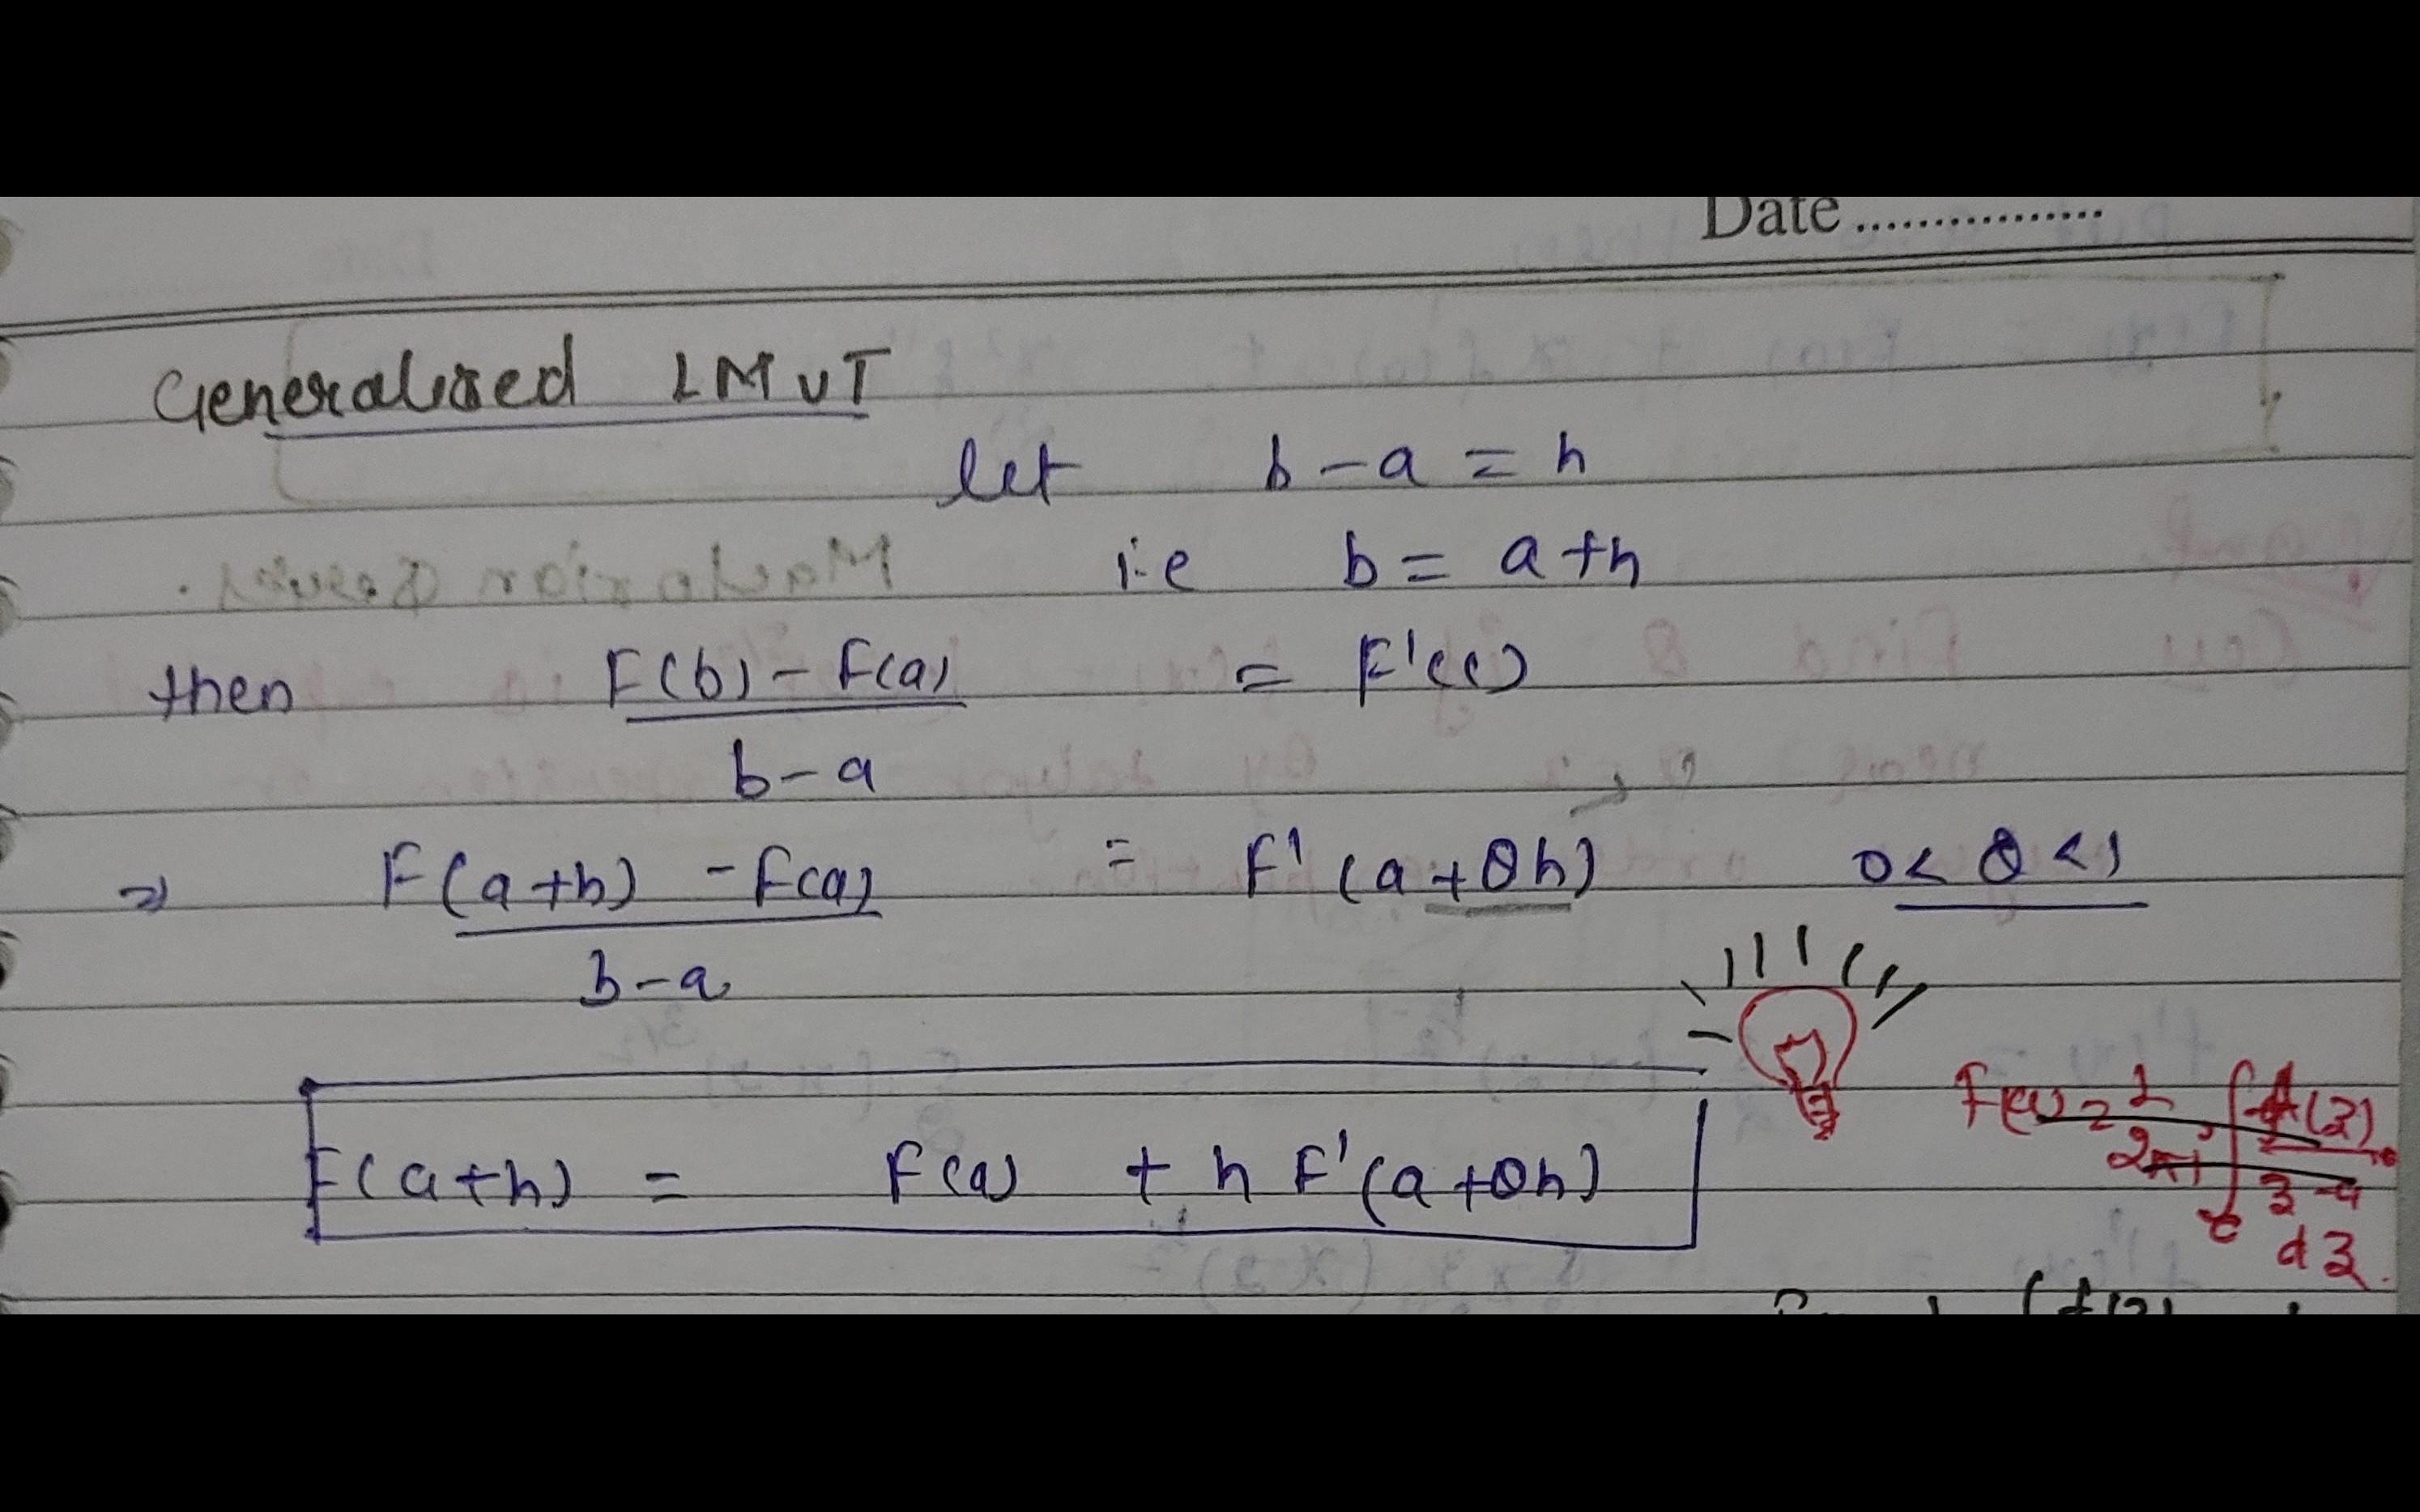 Date ................
Generalised LMVT
let b - a = h
i.e b = a + h
then F(b) - F(a) = F'(c)
b - a
⇒ F(a+h) - F(a) = F'(a + θh) 0 < θ < 1
b - a
F(a+h) = F(a) + h F'(a+θh)